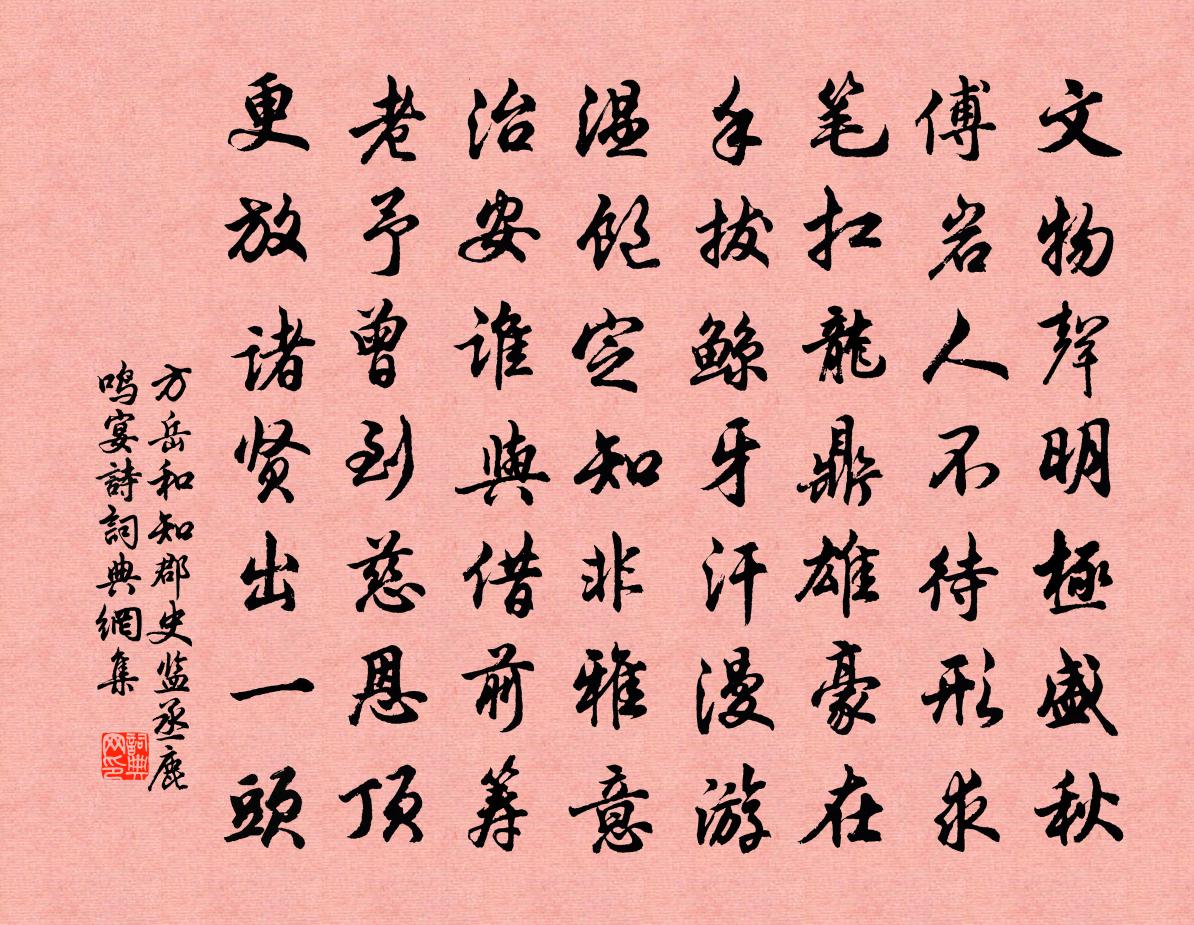 文物声明極盛秋
傅岩人不待形求
笔扛龍鼎雄豪在
手拔鲸牙汗漫游
温飽定知非雅意
治安谁與借前筹
老予曾到慈恩顶
更放诸贤出一頭
方岳和知郡史监丞鹿
鸣宴詩詞典網集
詞典
网印